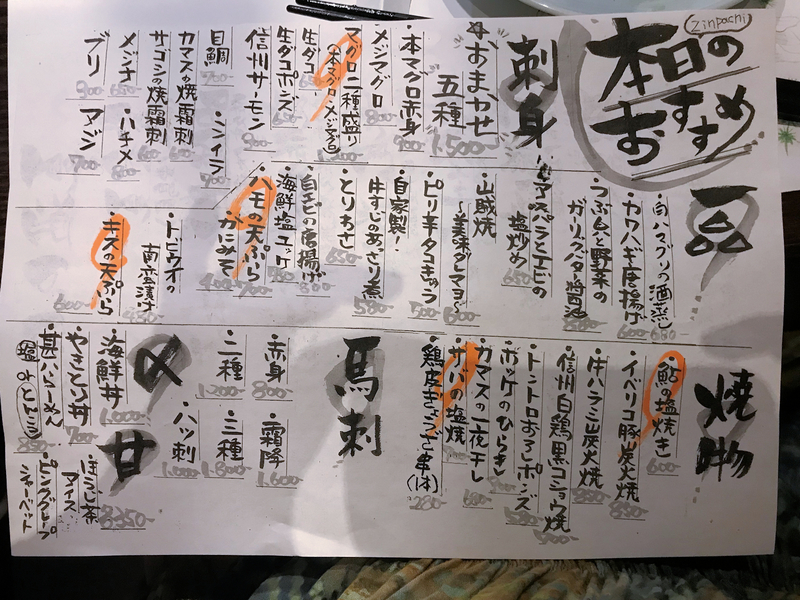 Zinpachi
本日の
おすすめ
刺身
おまかせ
五種
1,500-
本マグロ赤身
900-
メジマグロ
800-
マグロ二種盛り
(本マグロ・メジマグロ)
生ダコ
生ダコポンズ
650-
信州サーモン
800-
目鯛
700-
シイラ
700-
カマスの焼霜刺
サゴシの焼霜刺
600-
メンチ
ハチメ
ブリ
800-
マジ
700-
一品
白ハマグリの酒蒸し
650-
カワハギ唐揚げ
600-
つぶ貝と野菜の
ガーリックバター醤油
アスパラとエビの
塩炒め
650-
山賊焼
〜美味ダレマヨ〜
ピリ辛タコキムチ
500-
自家製!
牛すじのあっさり煮
580-
とりわさ
650-
白エビの唐揚げ
800-
海鮮塩ユッケ
ハモの天ぷら
700-
かにみそ
400-
トビウオの
南蛮漬け
キスの天ぷら
600-
焼物
鮎の塩焼き
600-
イベリコ豚炭火焼
牛ハラミ炭火焼
信州白鶏黒コショウ焼
トントロおろしポンズ
ホッケのひらき
カマスの一夜干し
サバの塩焼
鶏皮ぎょうざ串(1本)
280-
馬刺
赤身
800-
霜降
1,600-
二種
1,200-
三種
1,800-
ハツ刺
1,000-
〆
海鮮丼
1,000-
やきとり丼
700-
甚八らーめん
塩 or とんこつ
甘
ほうじ茶
アイス
350-
ピンクグレープ
シャーベット